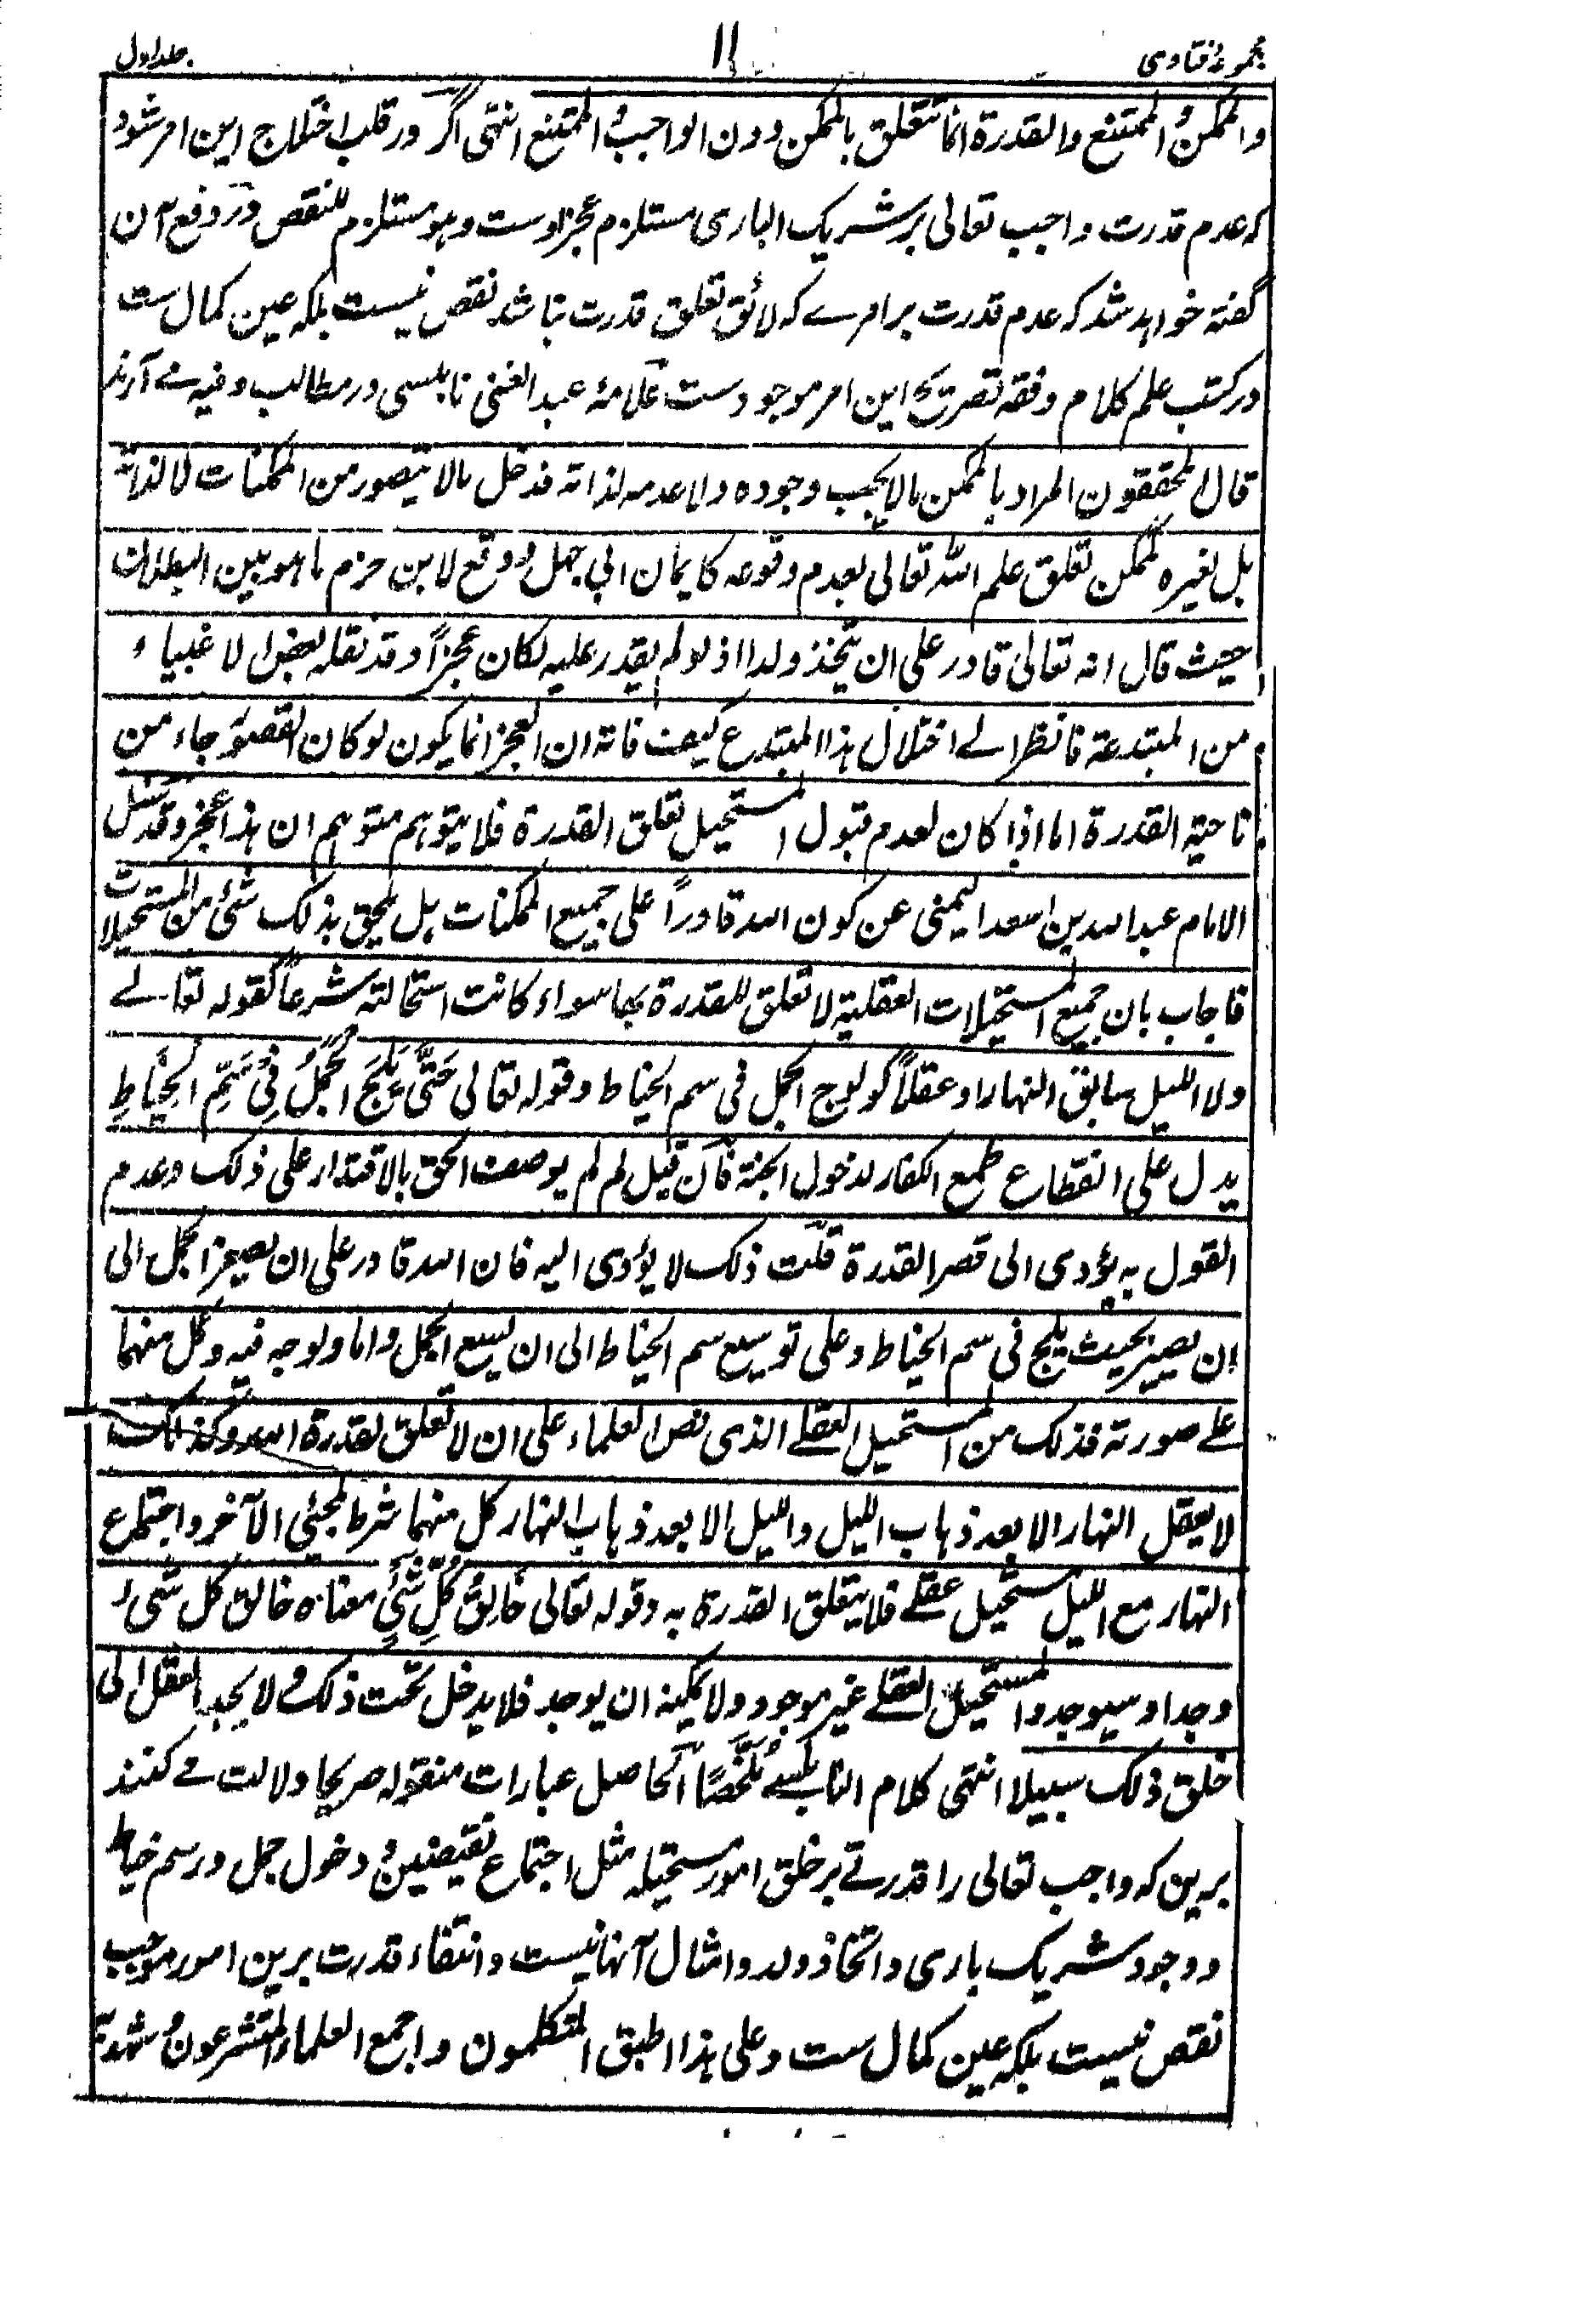 مجموعۂ فتاوی ۱۱ جلد اول
والممکن والممتنع والقدرة انما تتعلق بالممکن دون الواجب والممتنع انتہی اگر در قلب اختلاج این امر شود
کہ عدم قدرت واجب تعالی بر شریک الباری مستلزم عجز اوست وہو مستلزم للنقص در دفع آن
گفتہ خواہد شد کہ عدم قدرت بر امرے کہ لائق تعلق قدرت نباشد نقص نیست بلکہ عین کمال ست
در کتب علم کلام وفقہ تصریح این امر موجودست علامۂ عبد الغنی نابلسی در مطالب وفیہ مے آرند
قال المحققون المراد بالممکن مالا یجب وجودہ ولا عدمہ لذاتہ فدخل مالا یتصور من الممکنات لا لذاتہ
بل لغیرہ کممکن تعلق علم اللہ تعالی بعدم وقوعہ کایمان ابی جہل ووقع لابن حزم ما ہو بین البطلان
حیث قال انہ تعالی قادر علی ان یتخذ ولدا اذ لو لم یقدر علیہ لکان عجزاً وقد نقلہ بعض الاغبیاء
من المبتدعة فانظر الے اختلال ہذا المبتدع کیف فاتہ ان العجز انما یکون لو کان القصور جاء من
ناحیة القدرة اما اذا کان لعدم قبول المستحیل تعلق القدرة فلا یتوہم متوہم ان ہذا عجز وقد سئل
الامام عبد اللہ بن اسعد الیمنی عن کون اللہ قادراً علی جمیع الممکنات ہل یلحق بذلک شئ من المستحیلات
فاجاب بان جمیع المستحیلات العقلیة لا تعلق للقدرة بہا سواء کانت استحالتہ شرعاً کقولہ تعالے
ولا اللیل سابق النہار او عقلاً کولوج الجمل فی سم الخیاط وقولہ تعالی حَتّٰی یَلِجَ الْجَمَلُ فِیْ سَمِّ الْخِیَاطِ
یدل علی انقطاع طمع الکفار لدخول الجنة فان قیل لم لم یوصف الحق بالاقتدار علی ذلک وعدم
القول بہ یؤدی الی قصر القدرة قلت ذلک لا یؤدی الیہ فان اللہ قادر علی ان یصغر الجمل الی
ان یصیر بحیث یلج فی سم الخیاط وعلی توسیع سم الخیاط الی ان یسع الجمل واما ولوجہ فیہ وکل منہما
علے صورتہ فذلک من المستحیل العقلے الذی نص العلماء علی ان لا تعلق لقدرة اللہ وکذلک
لا یعقل النہار الا بعد ذہاب اللیل واللیل الا بعد ذہاب النہار کل منہما شرط لمجئی الآخر واجتماع
النہار مع اللیل مستحیل عقلے فلا یتعلق القدرة بہ وقولہ تعالی خَالِقُ کُلِّ شَیْءٍ معناہ خالق کل شیء
وجد او سیوجد والمستحیل العقلے غیر موجود ولا یمکنہ ان یوجد فلا یدخل تحت ذلک ولا یجد العقل الی
خلق ذلک سبیلا انتہی کلام النابلسے مُلَخَّصًا الحاصل عبارات منقولہ صریحا دلالت مے کنند
برین کہ واجب تعالی را قدرتے بر خلق امور مستحیلہ مثل اجتماع نقیضین و دخول جمل در سم خیاط
و وجود شریک باری واتخاذ ولد وامثال آنہا نیست وانتفاء قدرت برین امور موجب
نقص نیست بلکہ عین کمال ست وعلی ہذا اطبق المتکلمون واجمع العلماء المتشرعون